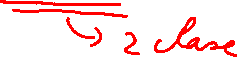 2 clase